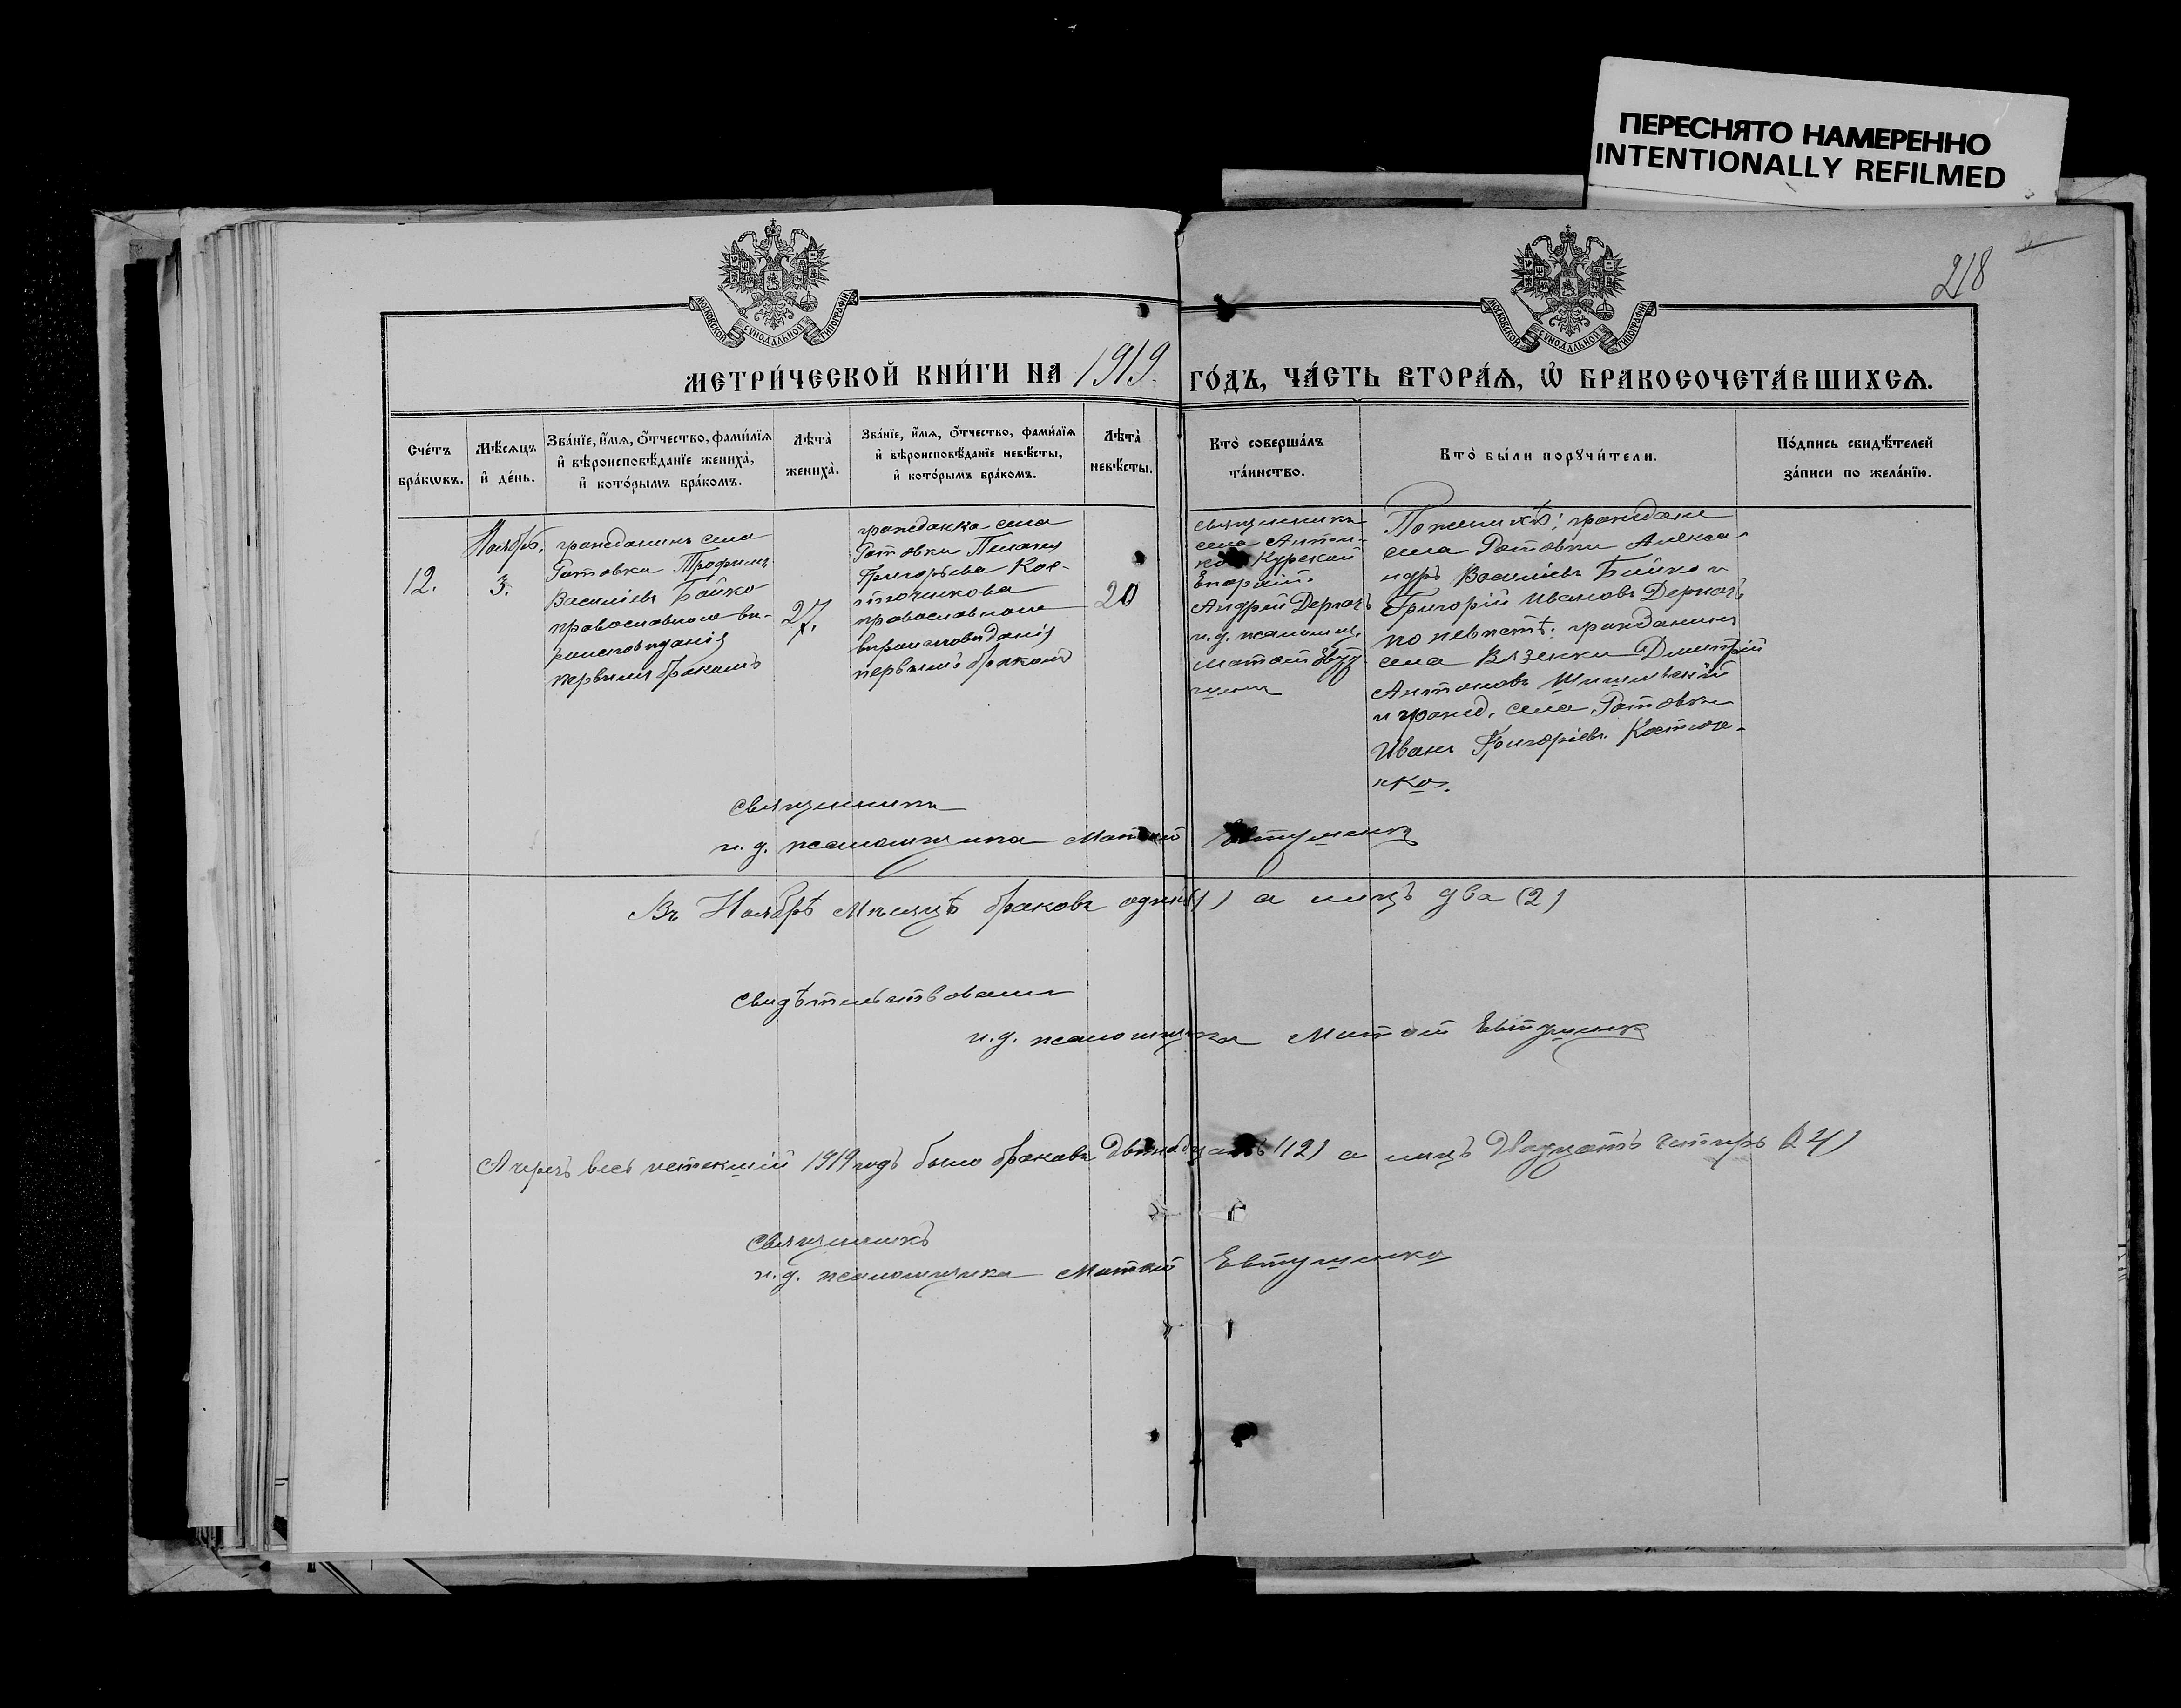 ПЕРЕСНЯТО НАМЕРЕННО
INTENTIONALLY REFILMED
218
МОСКОВСКОЙ СѴНОДАЛЬНОЙ ТИПОГРАФІИ
МОСКОВСКОЙ СѴНОДАЛЬНОЙ ТИПОГРАФІИ
МЕТРИ́ЧЕСКОЙ КНИ́ГИ НА 1919. ГО́ДЪ, ЧА́СТЬ ВТОРА́Ѧ, Ѽ БРАКОСОЧЕТА́ВШИХСѦ.
Сче́тъ
бра́кωвъ.
Мѣ́сѧцъ
и҆ де́нь.
Зва́нїе, и҆́мѧ, ѻ҆́тчество, фами́лїѧ
и҆ вѣроисповѣ́данїе жениха̀,
и҆ кото́рымъ бра́комъ.
Лѣ́та̀
жениха̀.
Зва́нїе, и҆́мѧ, ѻ҆́тчество, фами́лїѧ
и҆ вѣроисповѣ́данїе невѣ́сты,
и҆ кото́рымъ бра́комъ.
Лѣ́та̀
невѣ́сты.
Кто̀ соверша́лъ
та́инство.
Кто̀ бы́ли порꙋчи́тели.
По́дпись свидѣ́телей
за́писи по жела́нїю.
12.
Ноябрь.
3.
гражданинъ села
Ротовки Трофимъ
Василіевъ Бойко
православнаго вѣ-
роисповѣданія
первымъ бракомъ
27.
гражданка села
Ротовки Пелагия
Григорьева Кос-
православнаго
вѣроисповѣданія
первымъ бракомъ
20
священникъ
села
Курской
Епархіи
Андрей Деркачъ
и. д. псаломщ.
По женихѣ: граждане
села Ротовки Алекса-
ндръ Василіевъ Бойко и
Григорій Ивановъ Деркачъ
по невѣстѣ: гражданинъ
села Вязенки Дмитрій
Антоновъ
и гражд. села Ротовки
Иванъ Григоріевъ Костюче-
нко.
священникъ
и. д. псаломщика Матѳей Евтушенко
Въ Ноябрѣ Мѣсяцѣ браковъ одинъ (1) а лицъ два (2)
Свидѣтельствовали
и. д. псаломщика Матѳей Евтушенко
А чрезъ весь истекшій 1919 годъ было браковъ Двѣнадцать (12) а лицъ Двадцать четыре (24)
Священникъ
и. д. псаломщика Матѳей Евтушенко